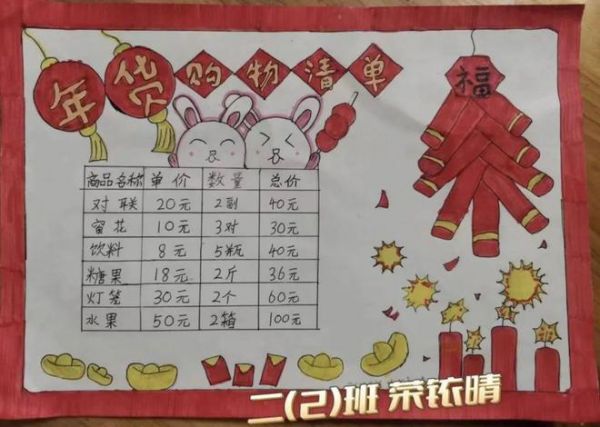 年货购物清单
福
商品名称 单价 数量 总价
对联 20元 2副 40元
窗花 10元 3对 30元
饮料 8元 5瓶 40元
糖果 18元 2斤 36元
灯笼 30元 2个 60元
水果 50元 2箱 100元
二(2)班 荣铱晴